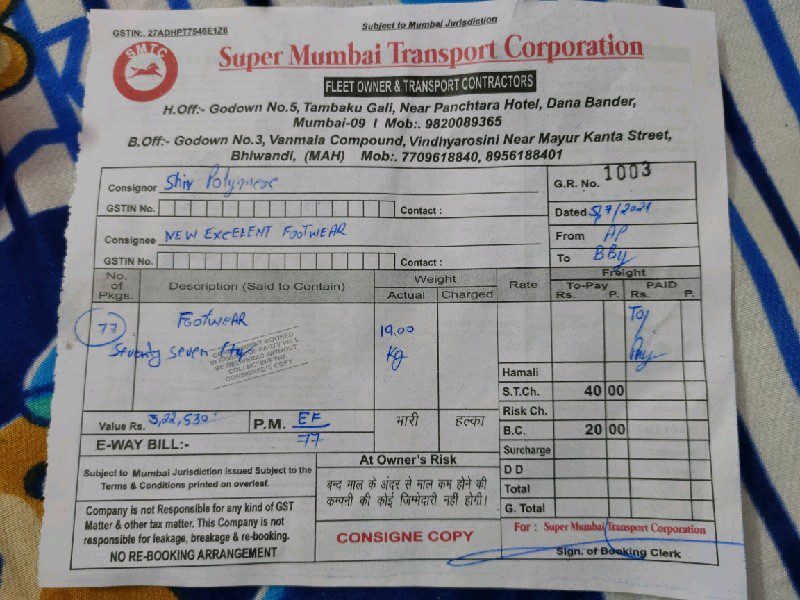 GSTIN:. 27ADHPT7546E1Z6
Subject to Mumbai Jurisdiction
S.M.T.C.
Super Mumbai Transport Corporation
FLEET OWNER & TRANSPORT CONTRACTORS
H.Off:- Godown No.5, Tambaku Gali, Near Panchtara Hotel, Dana Bander,
Mumbai-09 I Mob:. 9820089365
B.Off:- Godown No.3, Vanmala Compound, Vindhyarosini Near Mayur Kanta Street,
Bhiwandi, (MAH) Mob:. 7709618840, 8956188401
Consignor Shiv
G.R. No. 1003
GSTIN No. Contact :
Dated 5/7/2021
Consignee NEW EXCELENT FOOTWEAR
From AP
GSTIN No. Contact :
To BBy
No. of Pkgs. Description (Said to Contain) Weight Actual Charged Rate Freight To-Pay Rs. P. PAID Rs. P.
77 FOOTWEAR 19.00 To
Seventy seven Kg Pay
Hamali
S.T.Ch. 40 00
Risk Ch.
B.C. 20 00
Surcharge
D D
Total
G. Total
Value Rs. 3,22,530 P.M. EF 77 भारी हल्का
E-WAY BILL:-
Subject to Mumbai Jurisdiction Issued Subject to the
Terms & Conditions printed on overleaf.
Company is not Responsible for any kind of GST
Matter & other tax matter. This Company is not
responsible for leakage, breakage & re-booking.
NO RE-BOOKING ARRANGEMENT
At Owner's Risk
बन्द माल के अंदर से माल कम होने की
कम्पनी की कोई जिम्मेदारी नहीं होगी।
CONSIGNE COPY
For : Super Mumbai Transport Corporation
Sign. of Booking Clerk